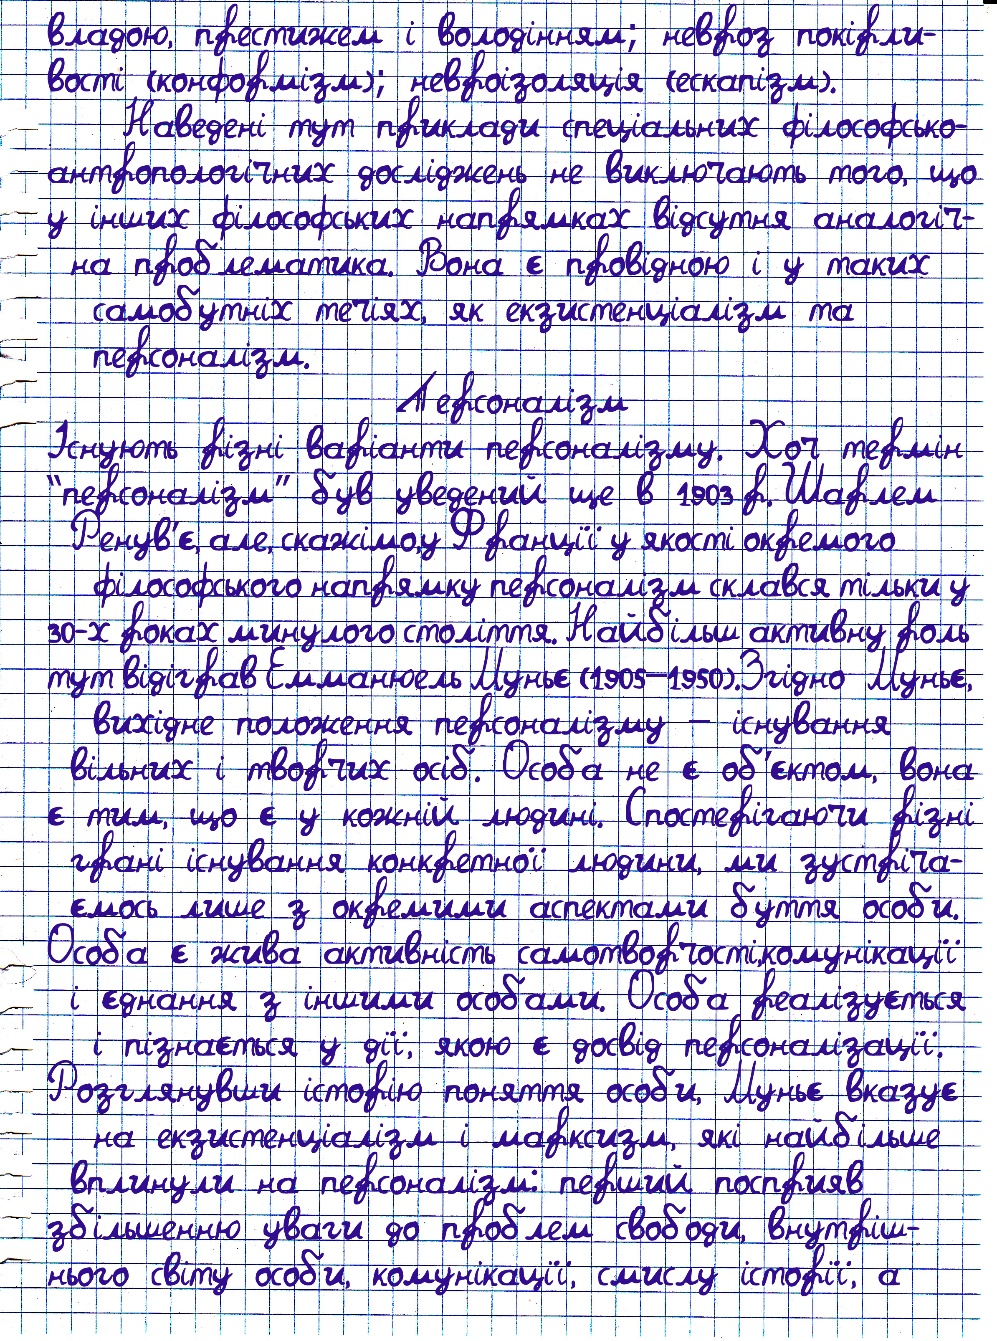 владою, престижем і володінням; невроз покірли-
вості (конформізм); невроізоляція (ескапізм).
Наведені тут приклади спеціальних філософсько-
антропологічних досліджень не виключають того, що
у інших філософських напрямках відсутня аналогіч-
на проблематика. Вона є провідною і у таких
самобутніх течіях, як екзистенціалізм та
персоналізм.
Персоналізм
Існують різні варіанти персоналізму. Хоч термін
"персоналізм" був уведений ще в 1903 р. Шарлем
Ренув'є, але, скажімо, у Франції у якості окремого
філософського напрямку персоналізм склався тільки у
30-х роках минулого століття. Найбільш активну роль
тут відіграв Емманюель Муньє (1905–1950). Згідно Муньє,
вихідне положення персоналізму – існування
вільних і творчих осіб. Особа не є об'єктом, вона
є тим, що є у кожній людині. Спостерігаючи різні
грані існування конкретної людини, ми зустріча-
ємось лише з окремими аспектами буття особи.
Особа є жива активність самотворчості, комунікації
і єднання з іншими особами. Особа реалізується
і пізнається у дії, якою є досвід персоналізації.
Розглянувши історію поняття особи, Муньє вказує
на екзистенціалізм і марксизм, які найбільше
вплинули на персоналізм: перший посприяв
збільшенню уваги до проблем свободи, внутріш-
нього світу особи, комунікації, смислу історії, а